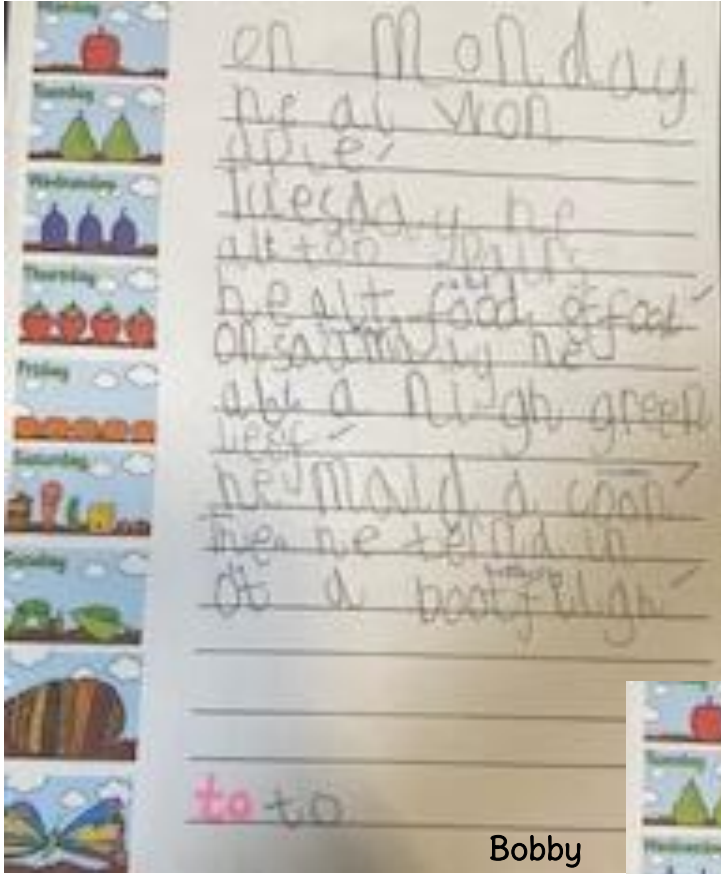 Monday
Tuesday
Wednesday
Thursday
Friday
Saturday
Sunday
on Monday
he at won
aple
Tuesday he
he alt food of food
on saturday he
alt a nigh green
leaf
he maid a coon
he ternd in
ot a bootfligh
to to
Bobby
Tuesday
Wednesday